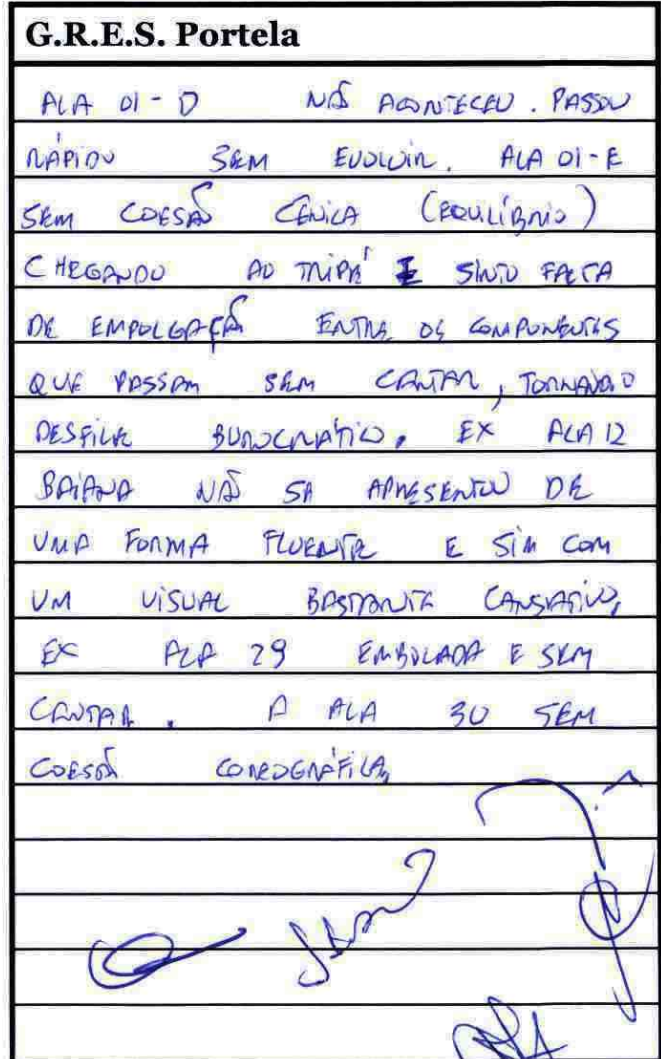 G.R.E.S. Portela
ALA 01 - D NÃO ACONTECEU. PASSOU
RÁPIDO SEM EVOLUIR. ALA 01-E
SEM COESÃO CÊNICA (EQUILÍBRIO)
CHEGANDO AO TRIPÉ I SINTO FALTA
DE EMPOLGAÇÃO ENTRE OS COMPONENTES
QUE PASSAM SEM CANTAR, TORNANDO O
DESFILE BUROCRÁTICO. EX ALA 12
BAIANA NÃO SE APRESENTOU DE
UMA FORMA FLUENTE E SIM COM
UM VISUAL BASTANTE CANSATIVO,
EX ALA 29 EMBOLADA E SEM
CANTAR. A ALA 30 SEM
COESÃO COREOGRÁFICA,